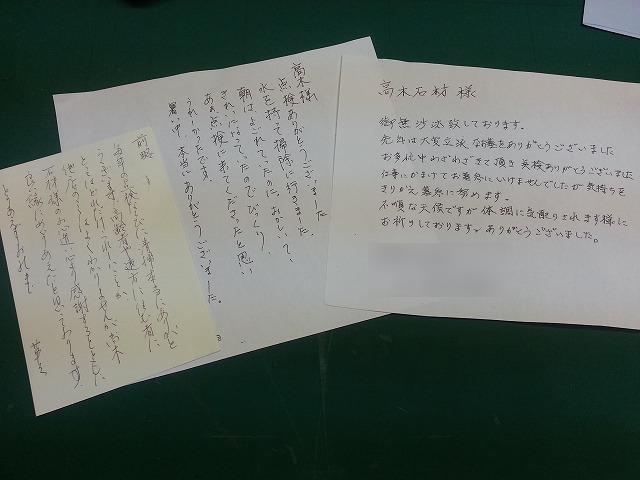 高木石材 様
御無沙汰致しております。
先日は大変立派な をありがとうございました
お多忙中わざわざきて頂き 点検ありがとうございました
仕事にかまけてお墓参にいけませんでしたが気持ちを
きりかえ墓参に努めます。
不順な天候ですが体調に気配りされます様に
お祈りしております。ありがとうございました。
高木様
点検ありがとうございました。
水を持って掃除に行きました。
朝はよごれていたのに、おかしい、て、
きれいになっていたのでびっくり、
あぁ点検に来てくださったと思い
うれしかったです。
暑い中、本当にありがとうございました。
前略
毎年の点検ならびに、お掃除、本当にありがと
うございます。高齢者や遠方に 者に
とってはどれだけ ことか
他店のことはよくわかりませんが、高木
石材様のお心遣い、心より感謝するとともに、
良い縁にめぐりあえたと思っております。
とりあえずお礼まで 草々